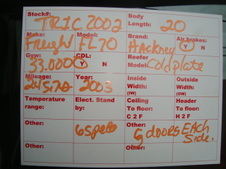 Stock#: TRIC2002 Body Length: 20
Make: Freight Model: FL70 Brand: HACKney Air brakes: Y N
Gvw: 33,000 CDL: Y N Reefer Model: Coldplate
Mileage: Year: 2003 Inside Width: (IW) Outside Width: (OW)
Temperature range: Elect. Stand by: Ceiling To floor: C 2 F Header To floor: H 2 F
Other: 6 Speed Other: 6 doors EACH Side.